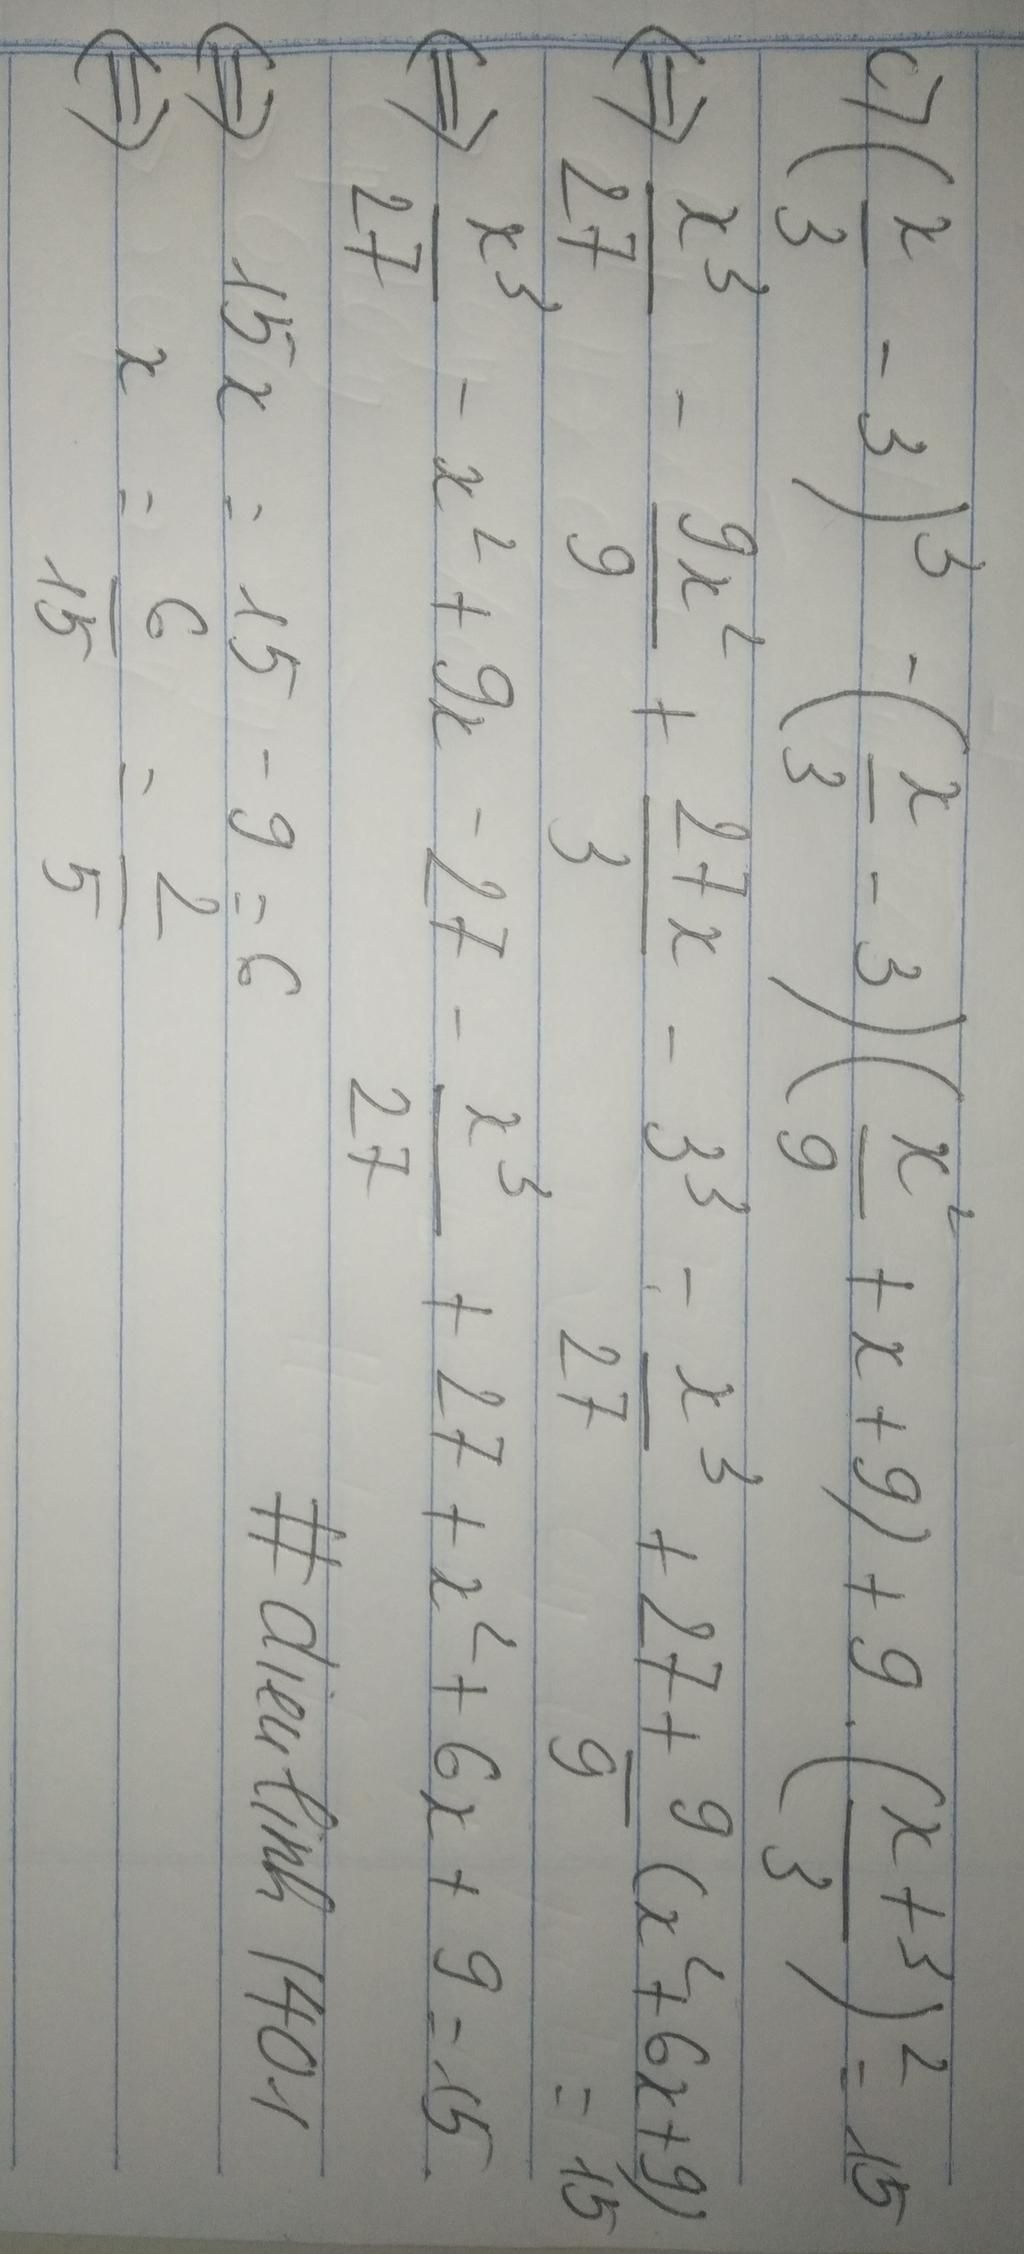 c) (x/3 - 3)³ - (x/3 - 3)(x²/9 + x + 9) + 9 . ((x+3)/3)² = 15
⇔ x³/27 - 9x²/9 + 27x/3 - 3³ - x³/27 + 27 + 9/9 (x² + 6x + 9) = 15
⇔ x³/27 - x² + 9x - 27 - x³/27 + 27 + x² + 6x + 9 = 15
⇔ 15x = 15 - 9 = 6
⇔ x = 6/15 = 2/5
# dieulinh 1401